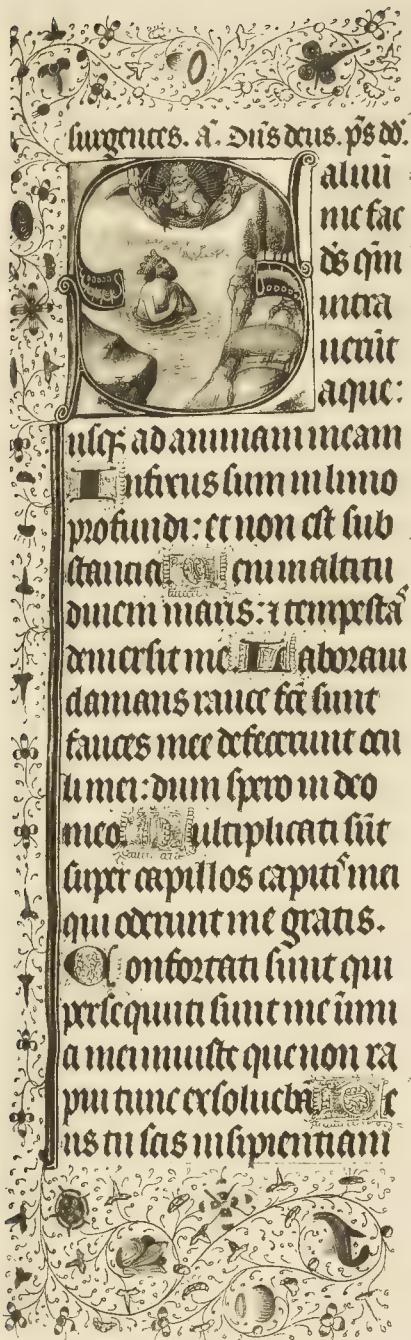 surgentes. a̅. Dn̅s deus. p̅s dd̅.
Saluu̅
me fac
ds̅ qm̅
intra
uerut̅
aque:
usq̅ ad animam meam
Infixus sum in limo
profundi: et non est sub
stancia Veni in altitu
dinem maris: ⁊ tempesta̅s
demersit me Laboraui
clamans rauce fc̅e sunt
fauces mee defecerunt ocu
li mei: dum spero in deo
meo Multiplicati su̅t
super capillos capiti̅s mei
qui oderunt me gratis.
Confortati sunt qui
persequuti sunt me i̅nimi
a mei iniuste que non ra
pui tunc exsolueba̅ De
us tu scis insipientiam